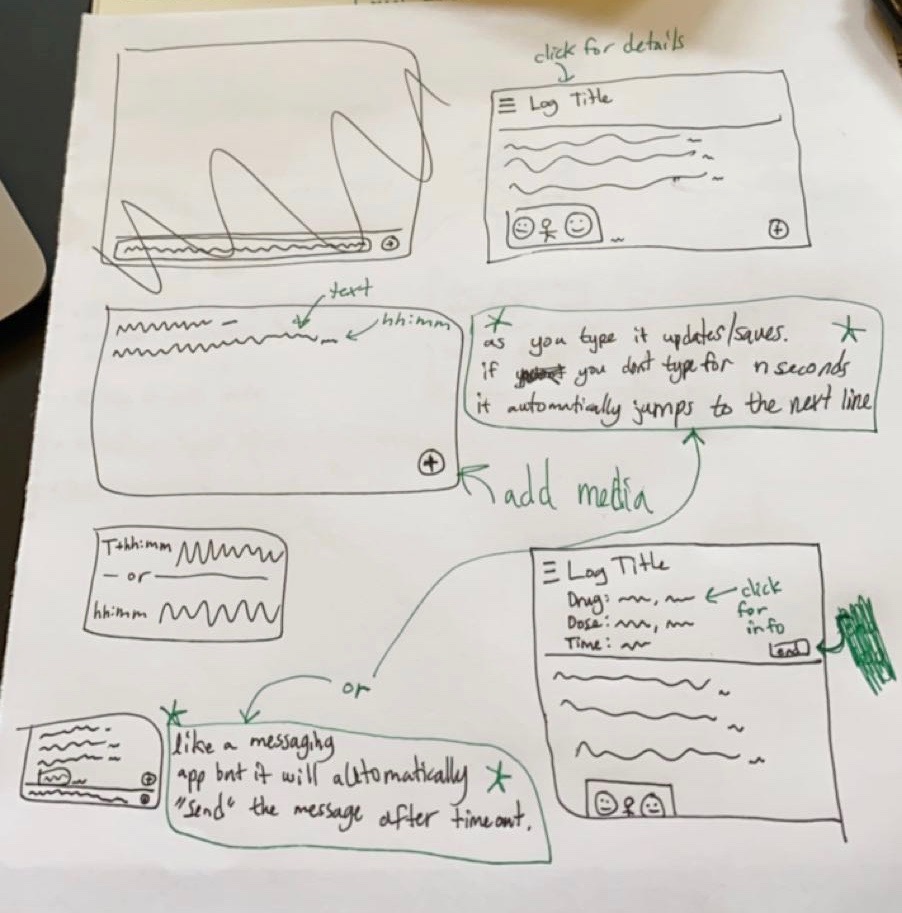 click for details
Log Title
text
hh:mm
as you type it updates/saves.
if you dont type for n seconds
it automatically jumps to the next line
add media
T+hh:mm
or
hh:mm
Log Title
Drug:
Dose:
Time:
click
for
info
end
or
like a messaging
app but it will automatically
"send" the message after timeout.